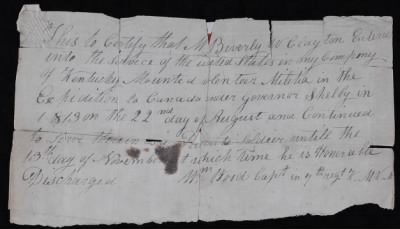 This to Certify that M Beverly W Clayton Entered
into the Service of the united States in my Company
of Kentucky Mounted volenteer Militia in the
Expedition to Canada under governor Shelby in
1813 on the 22nd day of August and Continued
to Serve therein as a Soldier untill the
13th day of November at which time he is Honorable
Discharged Wm Wood Capt in 7th Regt K M